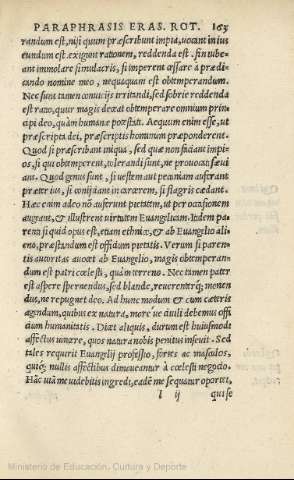 PARAPHRASIS ERAS. ROT. 163
randum est, nisi quum præscribunt impia, uocant in ius
eundum est. exigunt rationem, reddenda est, sin iube-
ant immolare simulacris, si imperent cessare à prædi-
cando nomine meo, nequaquam est obtemperandum.
Nec sunt tamen conuicijs irritandi, sed sobrie reddenda
est ratio, quur magis deceat obtemperare omnium prin-
cipi deo, quàm humanæ potestati. Aequum enim esse, ut
præscripta dei, præscriptis hominum præponderent.
Quod si præscribant iniqua, sed quæ non faciant impi-
os, si quis obtemperet, tolerandi sunt, ne prouocati sæui
ant. Quod genus sunt, si uestem aut pecuniam auferant
præter ius, si conijciant in carcerem, si flagris cædant.
Hæc enim adeo nō auferunt pietatem, ut per occasionem
augeant, & illustrent uirtutem Euangelicam. Itidem pa-
renti si quid opus est, etiam ethnico, & ab Euangelio ali
eno, præstandum est officium pietatis. Verum si paren-
tis autoritas auocet ab Euangelio, magis obtemperan-
dum est patri cœlesti, quàm terreno. Nec tamen pater
est aspere spernendus, sed blande, reuerenterq; monen
dus, ne repugnet deo. Ad hunc modum & cum cæteris
agendum, quibus ex natura, more ue ciuili debemus offi
cium humanitatis. Dicet aliquis, durum est huiusmodi
affectus uincere, quos natura nobis penitus inseuit. Sed
tales requirit Euangelij professio, fortes ac masculos,
quiq; nullis affectibus dimoueantur à cœlesti negocio.
Hac uia me uidebitis ingredi, eadē me sequatur oportet,
l ij quise
Ministerio de Educación, Cultura y Deporte